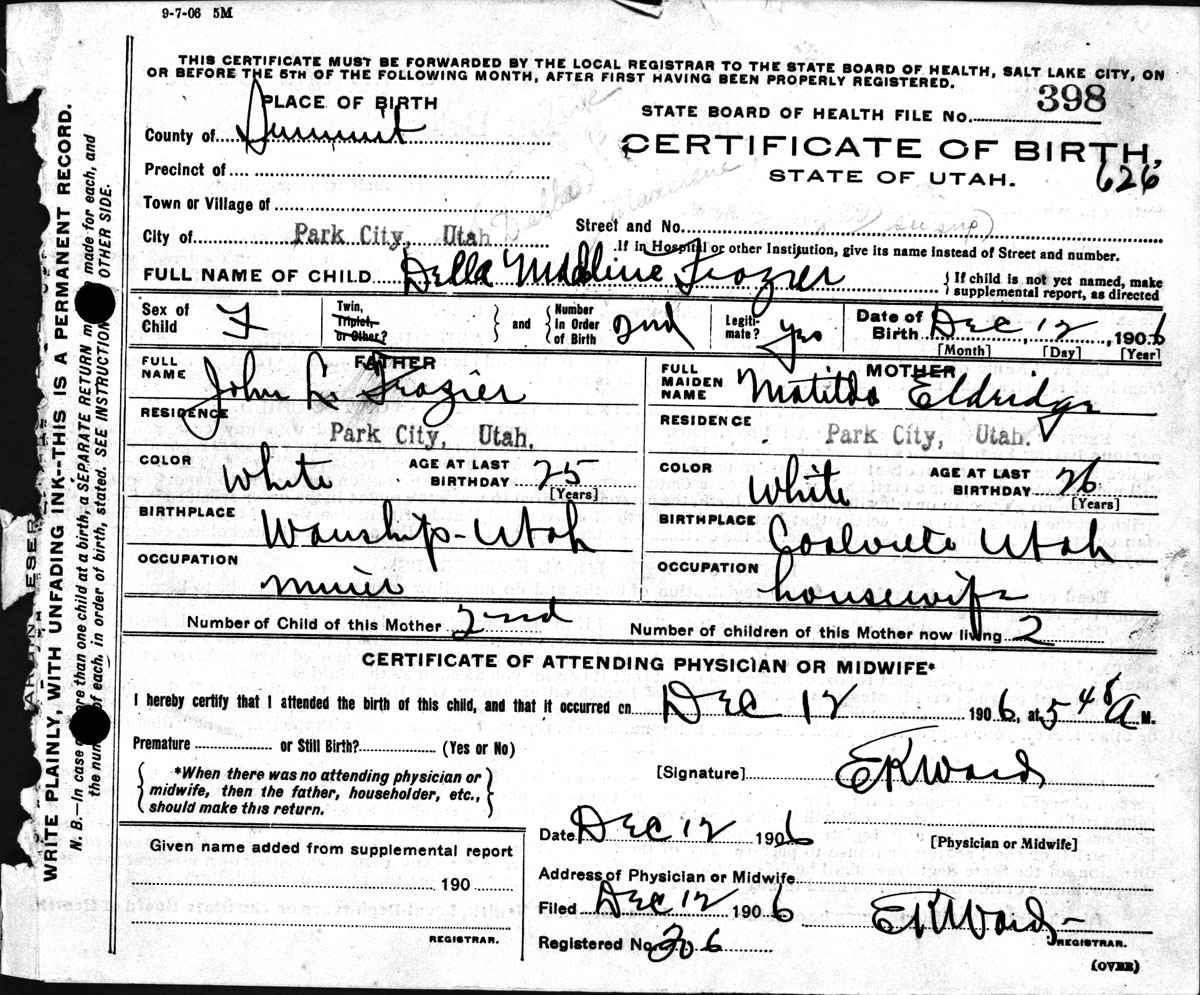 9-7-06 5M
THIS CERTIFICATE MUST BE FORWARDED BY THE LOCAL REGISTRAR TO THE STATE BOARD OF HEALTH, SALT LAKE CITY, ON
OR BEFORE THE 5TH OF THE FOLLOWING MONTH, AFTER FIRST HAVING BEEN PROPERLY REGISTERED.
PLACE OF BIRTH
STATE BOARD OF HEALTH FILE No. 398
County of Summit
CERTIFICATE OF BIRTH,
Precinct of
STATE OF UTAH. 626
Town or Village of
Street and No.
City of Park City, Utah
If in Hospital or other Institution, give its name instead of Street and number.
FULL NAME OF CHILD Della Madeline Frazier
{ If child is not yet named, make
supplemental report, as directed
Sex of Child F
Twin, Triplet, or Other? } and { Number in Order of Birth 2nd
Legiti-mate? yes
Date of Birth Dec 12, 1906
[Month] [Day] [Year]
FATHER
FULL NAME John L. Frazier
MOTHER
FULL MAIDEN NAME Matilda Eldridge
RESIDENCE Park City, Utah.
RESIDENCE Park City, Utah.
COLOR White AGE AT LAST BIRTHDAY 25 [Years]
COLOR White AGE AT LAST BIRTHDAY 26 [Years]
BIRTHPLACE Wanship - Utah
BIRTHPLACE Coalville Utah
OCCUPATION miner
OCCUPATION housewife
Number of Child of this Mother 2nd
Number of children of this Mother now living 2
CERTIFICATE OF ATTENDING PHYSICIAN OR MIDWIFE*
I hereby certify that I attended the birth of this child, and that it occurred on Dec 12 1906, at 5 45 A M.
Premature or Still Birth? (Yes or No)
{ *When there was no attending physician or
midwife, then the father, householder, etc.,
should make this return. }
[Signature] EKWard
Date Dec 12 1906
[Physician or Midwife]
Given name added from supplemental report
190
REGISTRAR.
Address of Physician or Midwife
Filed Dec 12 1906 EKWard
REGISTRAR.
Registered No. 206
(OVER)
WRITE PLAINLY, WITH UNFADING INK--THIS IS A PERMANENT RECORD.
N. B.—In case of more than one child at birth, a SEPARATE RETURN m made for each, and
the num of each, in order of birth, stated. SEE INSTRUCTION OTHER SIDE.